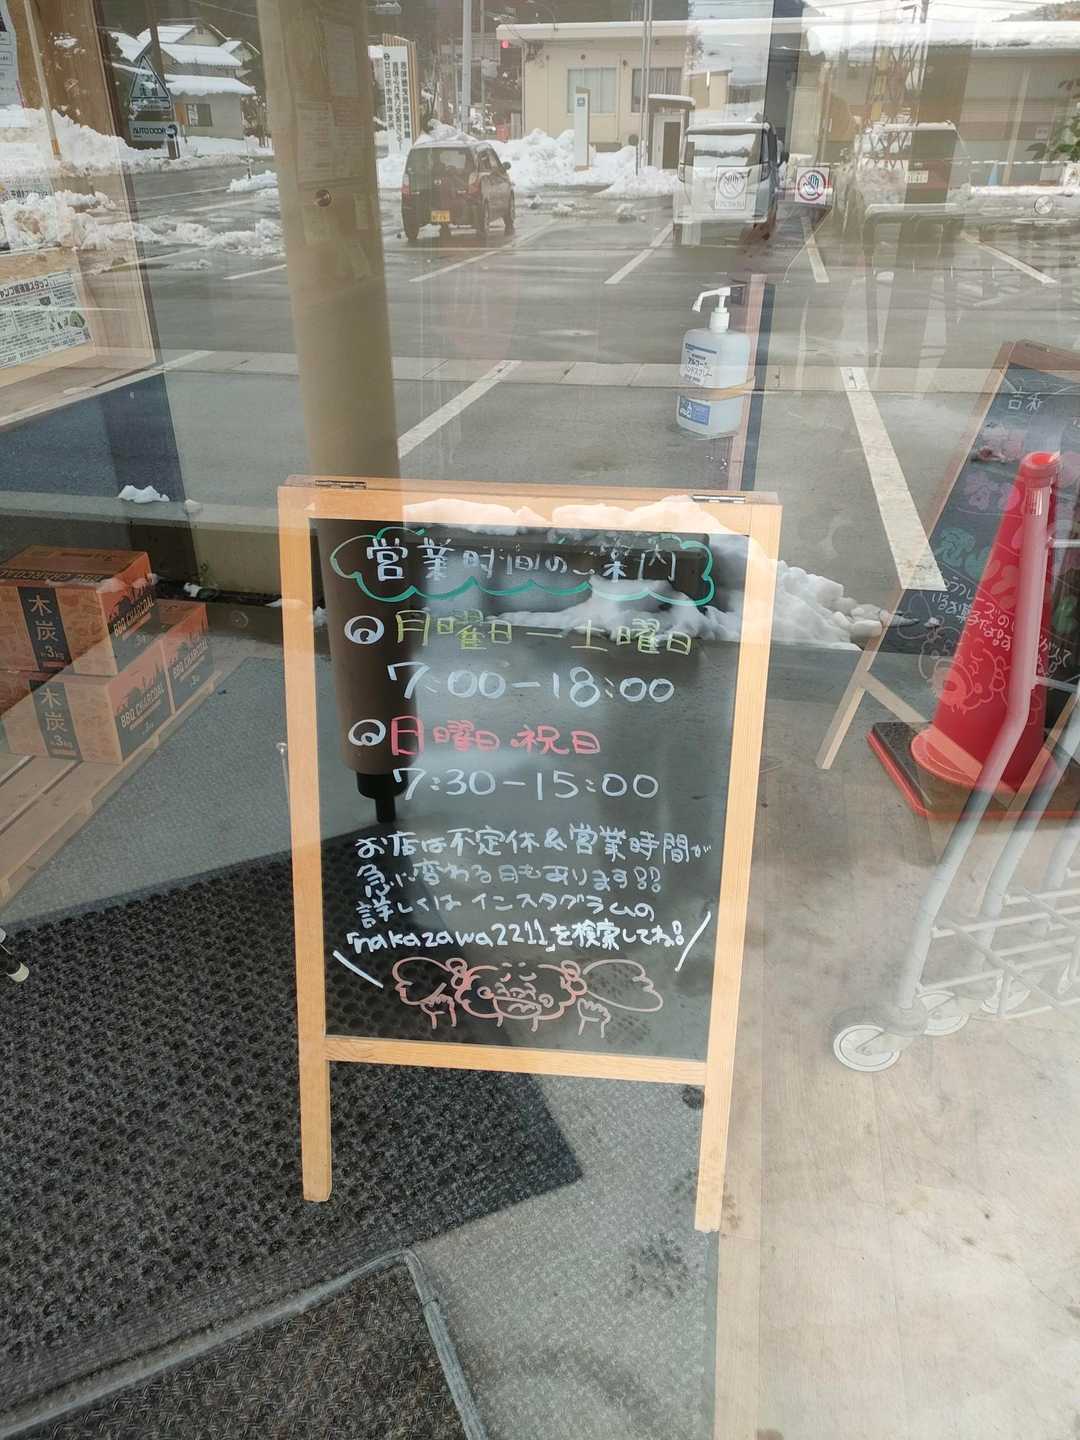 営業時間のご案内
月曜日ー土曜日
7:00-18:00
日曜日・祝日
7:30-15:00
お店は不定休&営業時間が
急に変わる日もあります!!
詳しくは インスタグラムの
「nakazawa2211」を検索してね!
アルコール
ハンドスプレー
木炭
約3kg
BBQ CHARCOAL
木炭
約3kg
BBQ CHARCOAL
吉和